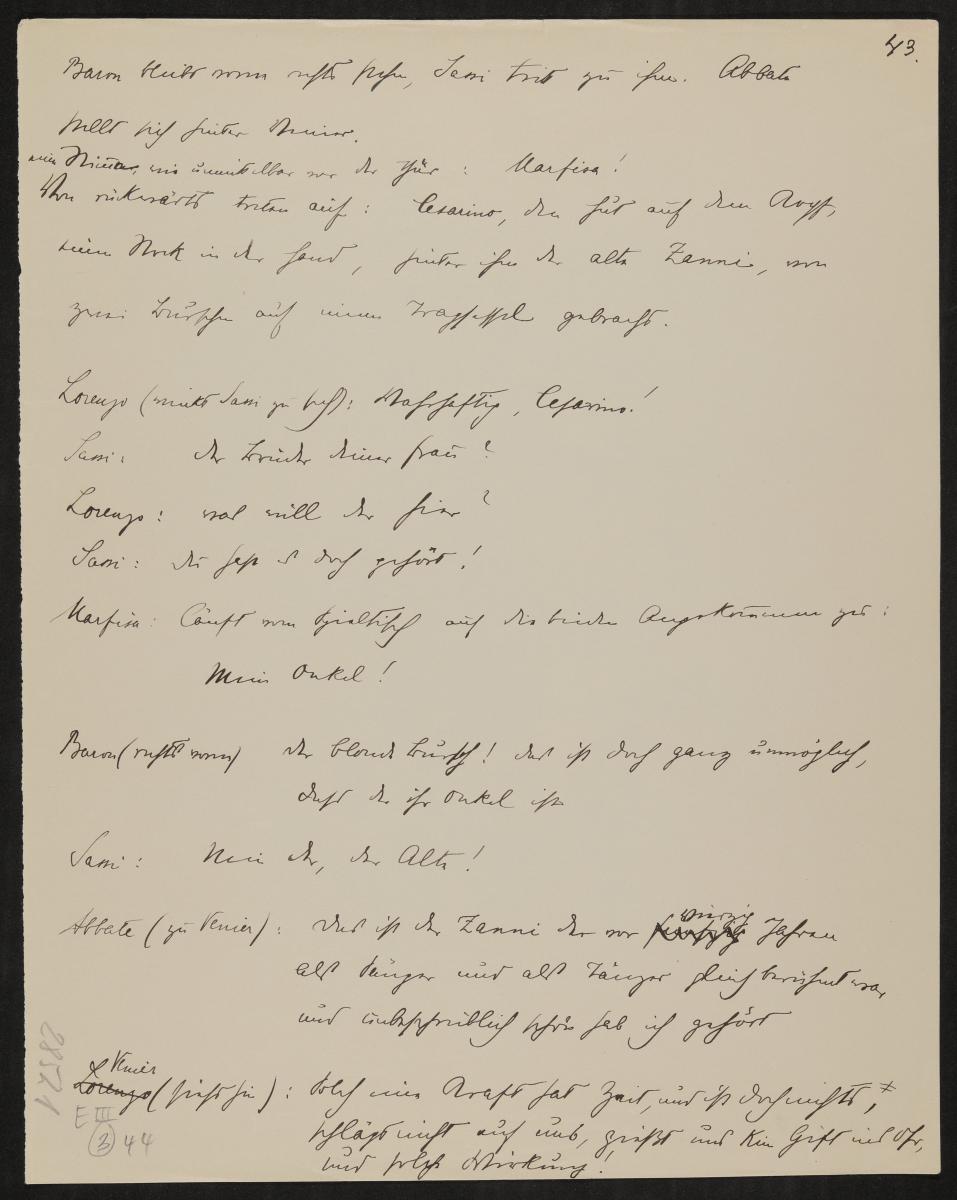 43.
Baron bleibt vorn rechts stehn, Sassi tritt zu ihm. Abbate
stellt sich hinter Venier.
eine Stimme, wie unmittelbar vor der Thür : Marfisa!
Von rückwärts treten auf : Cesarino, den Hut auf dem Kopf,
einen Stock in der Hand, hinter ihm der alte Zanni, von
zwei Burschen auf einem Tragsessel gebracht.
Lorenzo (winkt Sassi zu sich): Wahrhaftig, Cesarino!
Sassi: der Bruder deiner Frau?
Lorenzo: was will der hier?
Sassi: du hast es doch gehört!
Marfisa: läuft vom Spieltisch auf die beiden Angekommenen zu:
Mein Onkel!
Baron (rechts vorn) der blonde Bursch! das ist doch ganz unmöglich,
dass der ihr Onkel ist
Sassi: Nein der, der Alte!
Abbate (zu Venier): das ist der Zanni der vor fünfzig vierzig Jahren
als Sänger und als Tänzer gleich berühmt war
und unbeschreiblich schön hab ich gehört
Lorenzo Venier (sieht hin): Solch eine Kraft hat Zeit, und ist doch nichts,
schlägt nicht auf uns, giesst uns kein Gift ins Ohr,
und solche Wirkung!
28521
E III
3 44